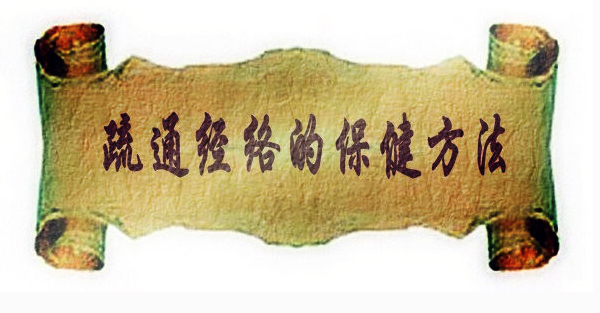 疏通经络的保健方法